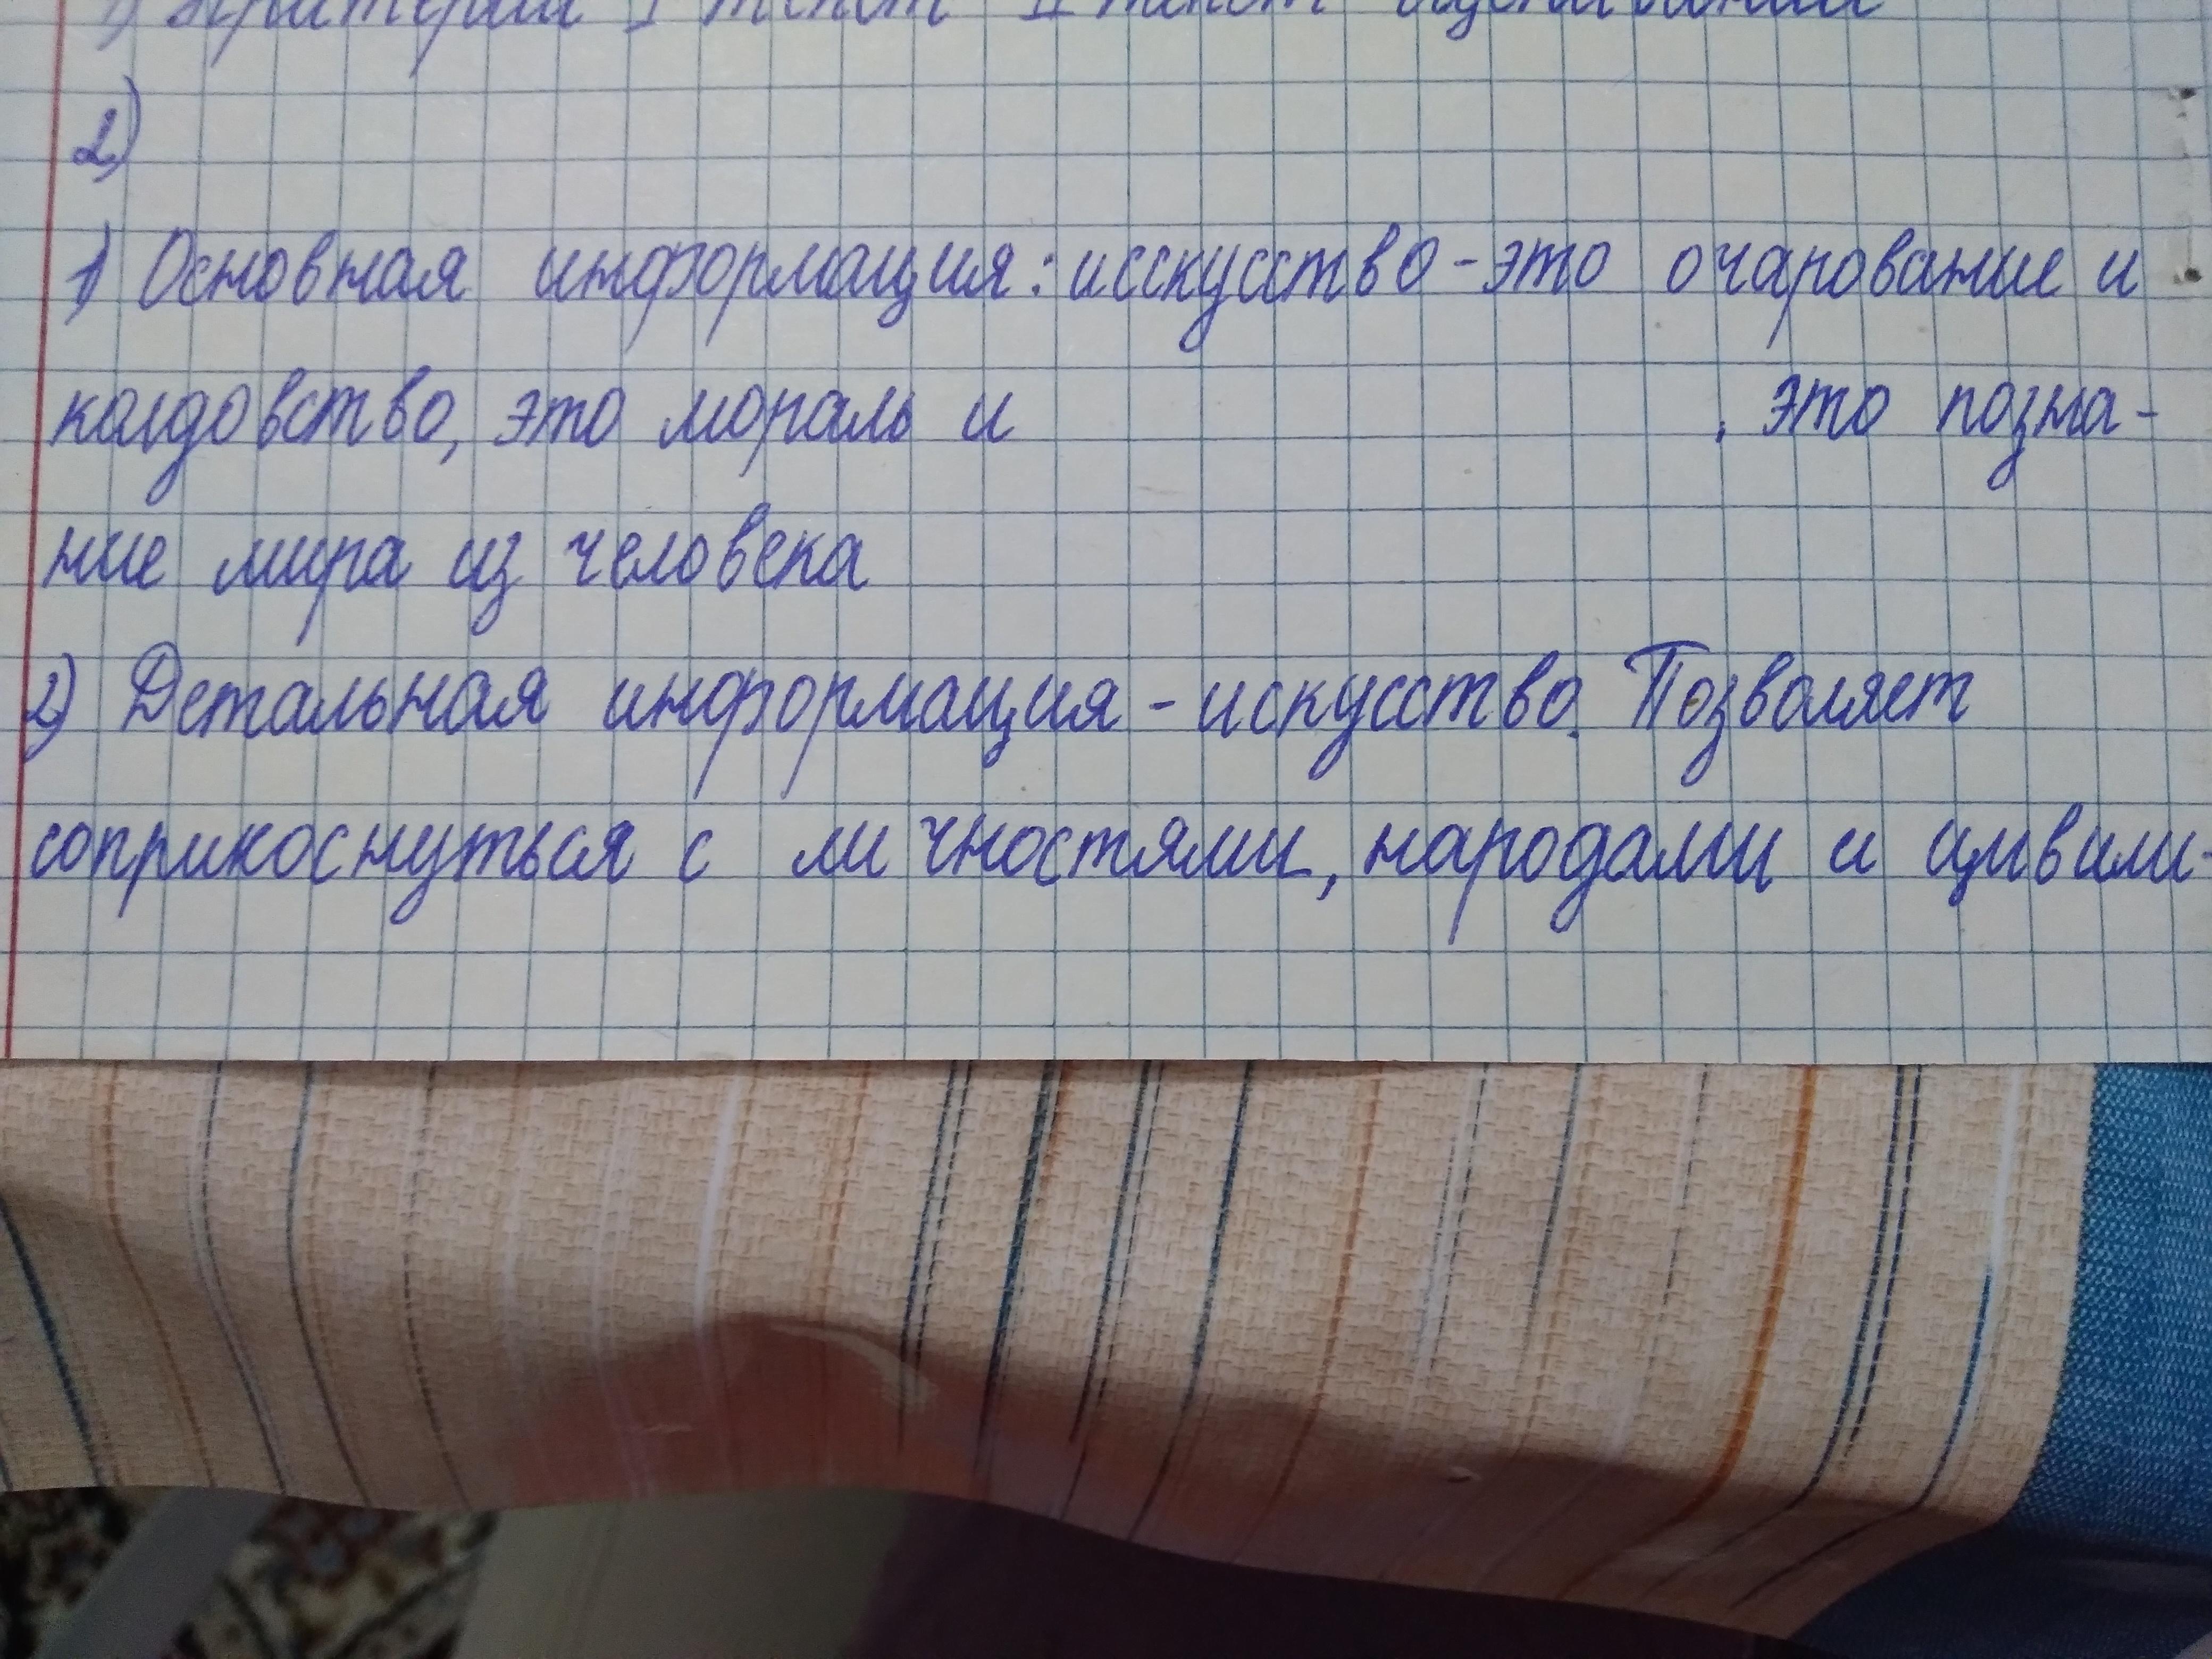 1) Критерий I текст II текст оценивания
2)
1) Основная информация: исскусство - это очарование и
колдовство, это мораль и , это позна-
ние мира из человека
2) Детальная информация - искусство. Позволяет
соприкоснуться с личностями, народами и цивили-